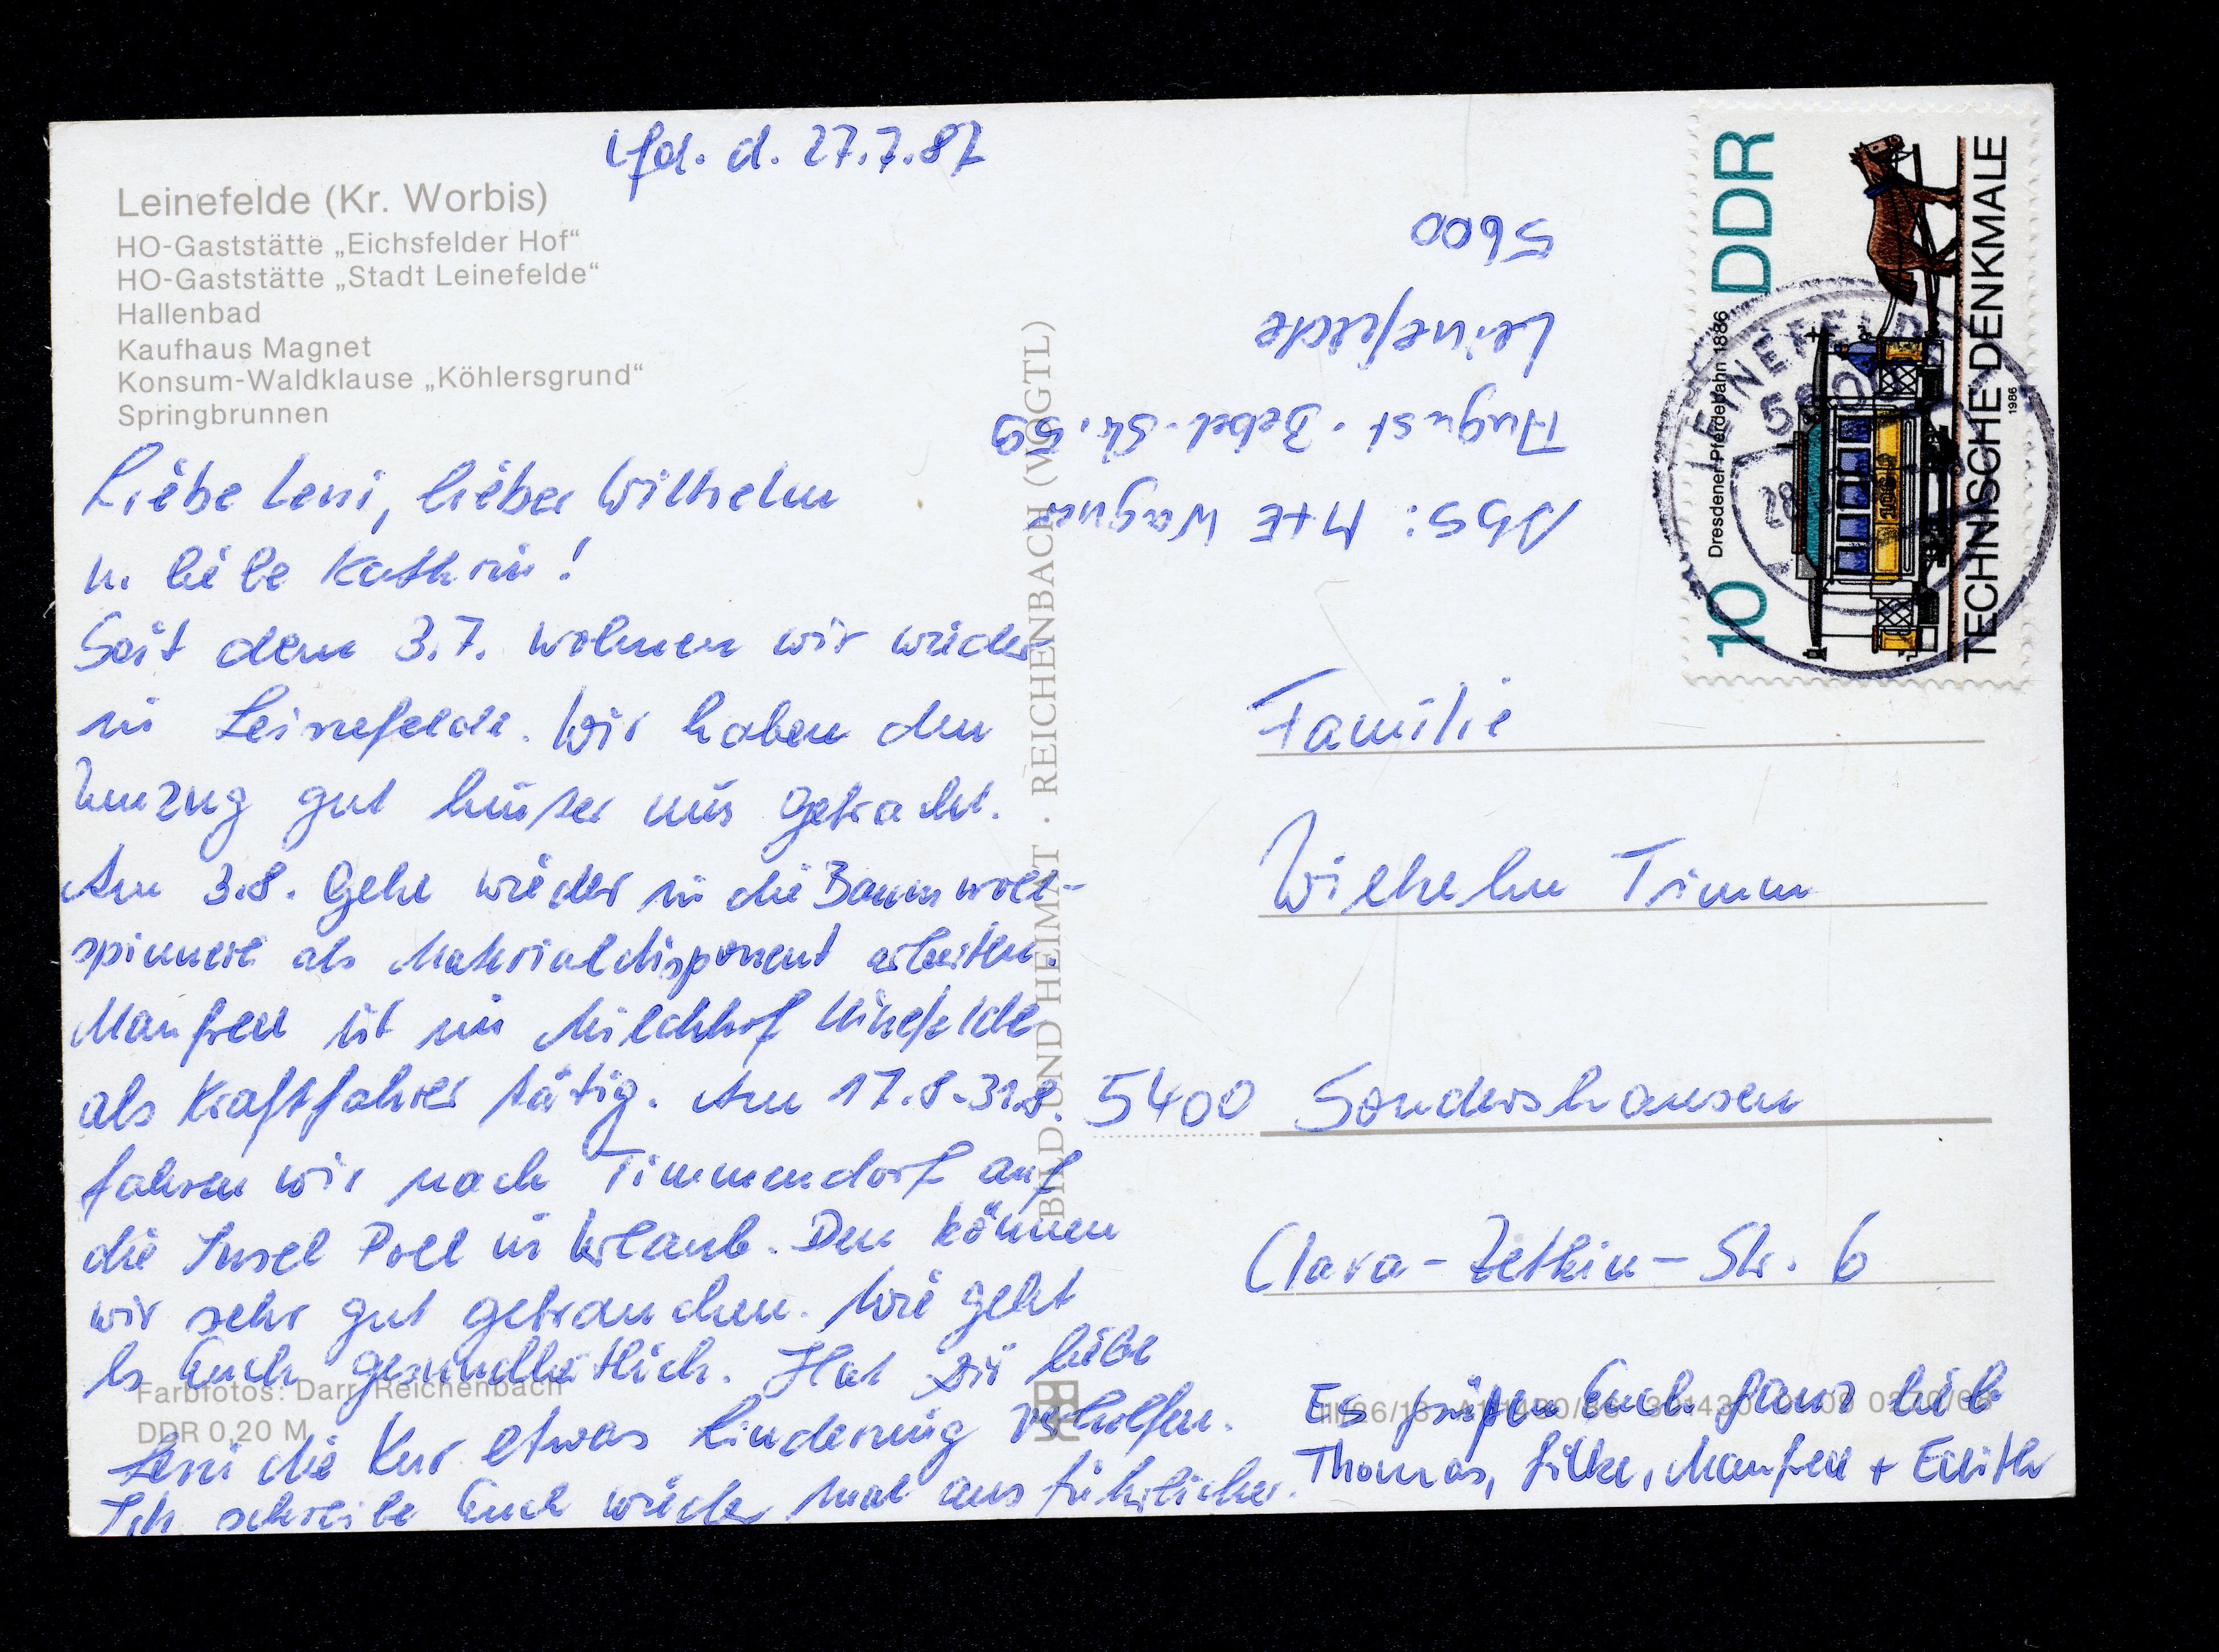 Lfd. d. 27.7.87
Leinefelde (Kr. Worbis)
HO-Gaststätte „Eichsfelder Hof“
HO-Gaststätte „Stadt Leinefelde“
Hallenbad
Kaufhaus Magnet
Konsum-Waldklause „Köhlersgrund“
Springbrunnen
Liebe Leni, lieber Wilhelm
u. liebe Kathrin!
Seit dem 3.7. wohnen wir wieder
in Leinefelde. Wir haben den
Umzug gut hinter uns gebracht.
Am 3.8. gehe wieder in die Baumwoll-
spinnerei als Materialdisponent arbeiten.
Manfred ist im Milchhof Leinefelde
als Kraftfahrer tätig. Am 17.8.-31.8.
fahren wir nach Timmendorf auf
die Insel Poel in Urlaub. Den können
wir sehr gut gebrauchen. Wie geht
es Euch gesundheitlich. Hat Dir liebe
Leni die Kur etwas Linderung verholfen.
Ich schreibe Euch wieder mal ausführlicher.
Farbfotos: Darr, Reichenbach
DDR 0,20 M
BILD UND HEIMAT · REICHENBACH (VOGTL)
Abs: M+E Wagner
August-Bebel-Str. 59
Leinefelde
5600
10 DDR
Dresdener Pferdebahn 1886
TECHNISCHE DENKMALE
1986
LEINEFELDE
5600
28
Familie
Wilhelm Timm
5400 Sondershausen
Clara-Zetkin-Str. 6
Es grüßen Euch ganz lieb
Thomas, Silke, Manfred + Edith